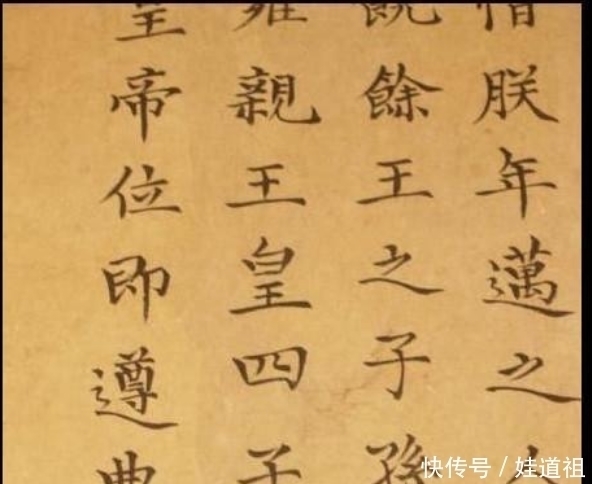 惜朕年邁之人
饒餘王之子孫
雍親王皇四子
皇帝位即遵典
快传号 / 娃道祖